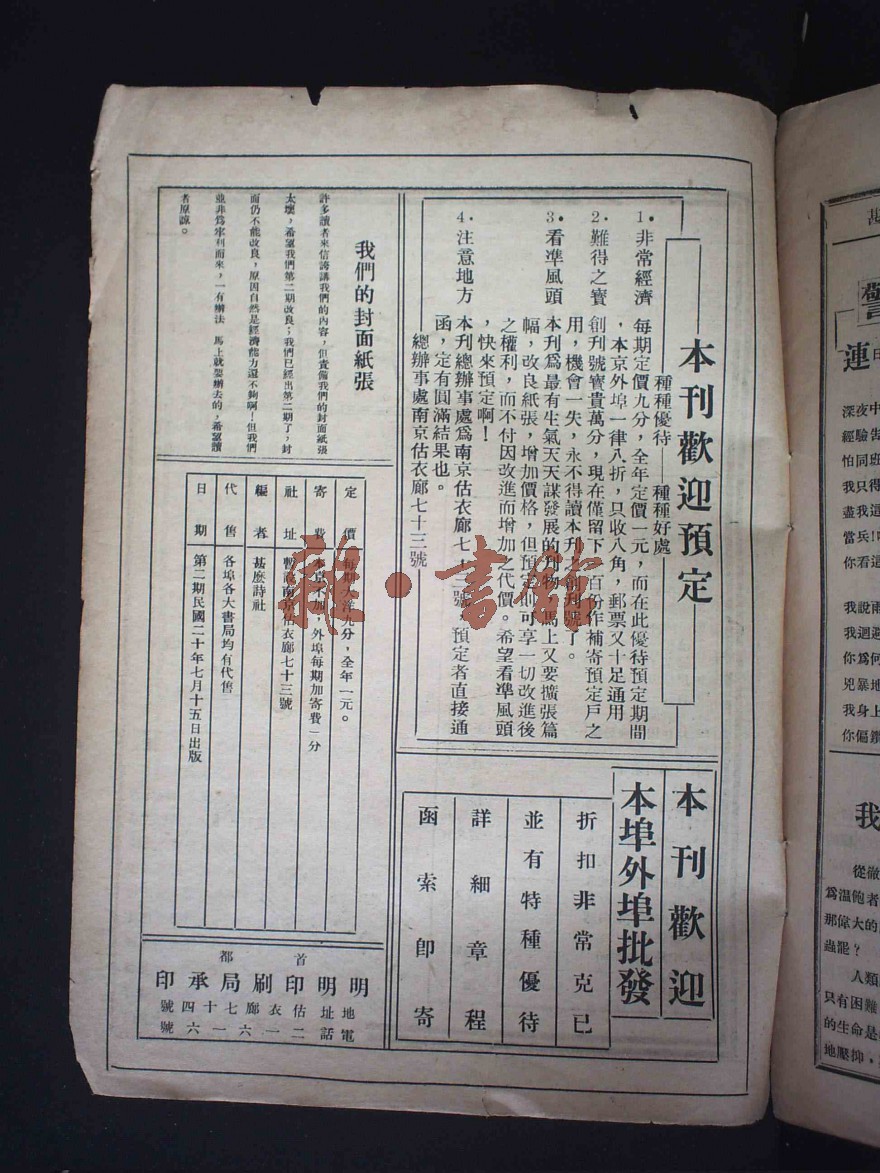 本刊歡迎預定
種種優待——種種好處
1．非常經濟　每期定價九分，全年定價一元，而在此優待預定期間
，本京外埠一律八折，只收八角，郵票又十足通用
2．難得之寶　創刊號寶貴萬分，現在僅留下百份作補寄預定戶之
用，機會一失，永不得讀本刊之創刊號了。
3．看準風頭　本刊爲最有生氣天天謀發展的刊物，馬上又要擴張篇
幅，改良紙張，增加價格，但預定則可享一切改進後
之權利，而不付因改進而增加之代價。希望看準風頭
，快來預定啊！
4．注意地方　本刊總辦事處爲南京估衣廊七十三號，預定者直接通
函，定有圓滿結果也。
總辦事處南京估衣廊七十三號
我們的封面紙張
許多讀者來信誇講我們的內容，但責備我們的封面紙張
太壞，希望我們第二期改良；我們已經出第二期了，封
面仍不能改良，原因自然是經濟能力還不夠啊！但我們
並非爲牢利而來，一有辦法　馬上就要辦去的，希望讀
者原諒。
定價　每期大洋九分，全年一元。
寄費　本京不加，外埠每期加寄費一分
社址　暫設南京估衣廊七十三號
編者　甚麼詩社
代售　各埠各大書局均有代售
日期　第二期民國二十年七月十五日出版
本刊歡迎
本埠外埠批發
折扣非常克已
並有特種優待
詳細章程
函索卽寄
首都
明明印刷局承印
地址估衣廊七十四號
電話二一六一六號
雜·書館
連
深夜中
經驗告
怕同班
我只得
盡我這
當兵！
你看這
我說兩
我迴避
你爲何
兇暴地
我身上
你偏鑽
我
從徹
爲溫飽者
那偉大的
蟲罷？
人類
只有困難
的生命是
地壓抑，